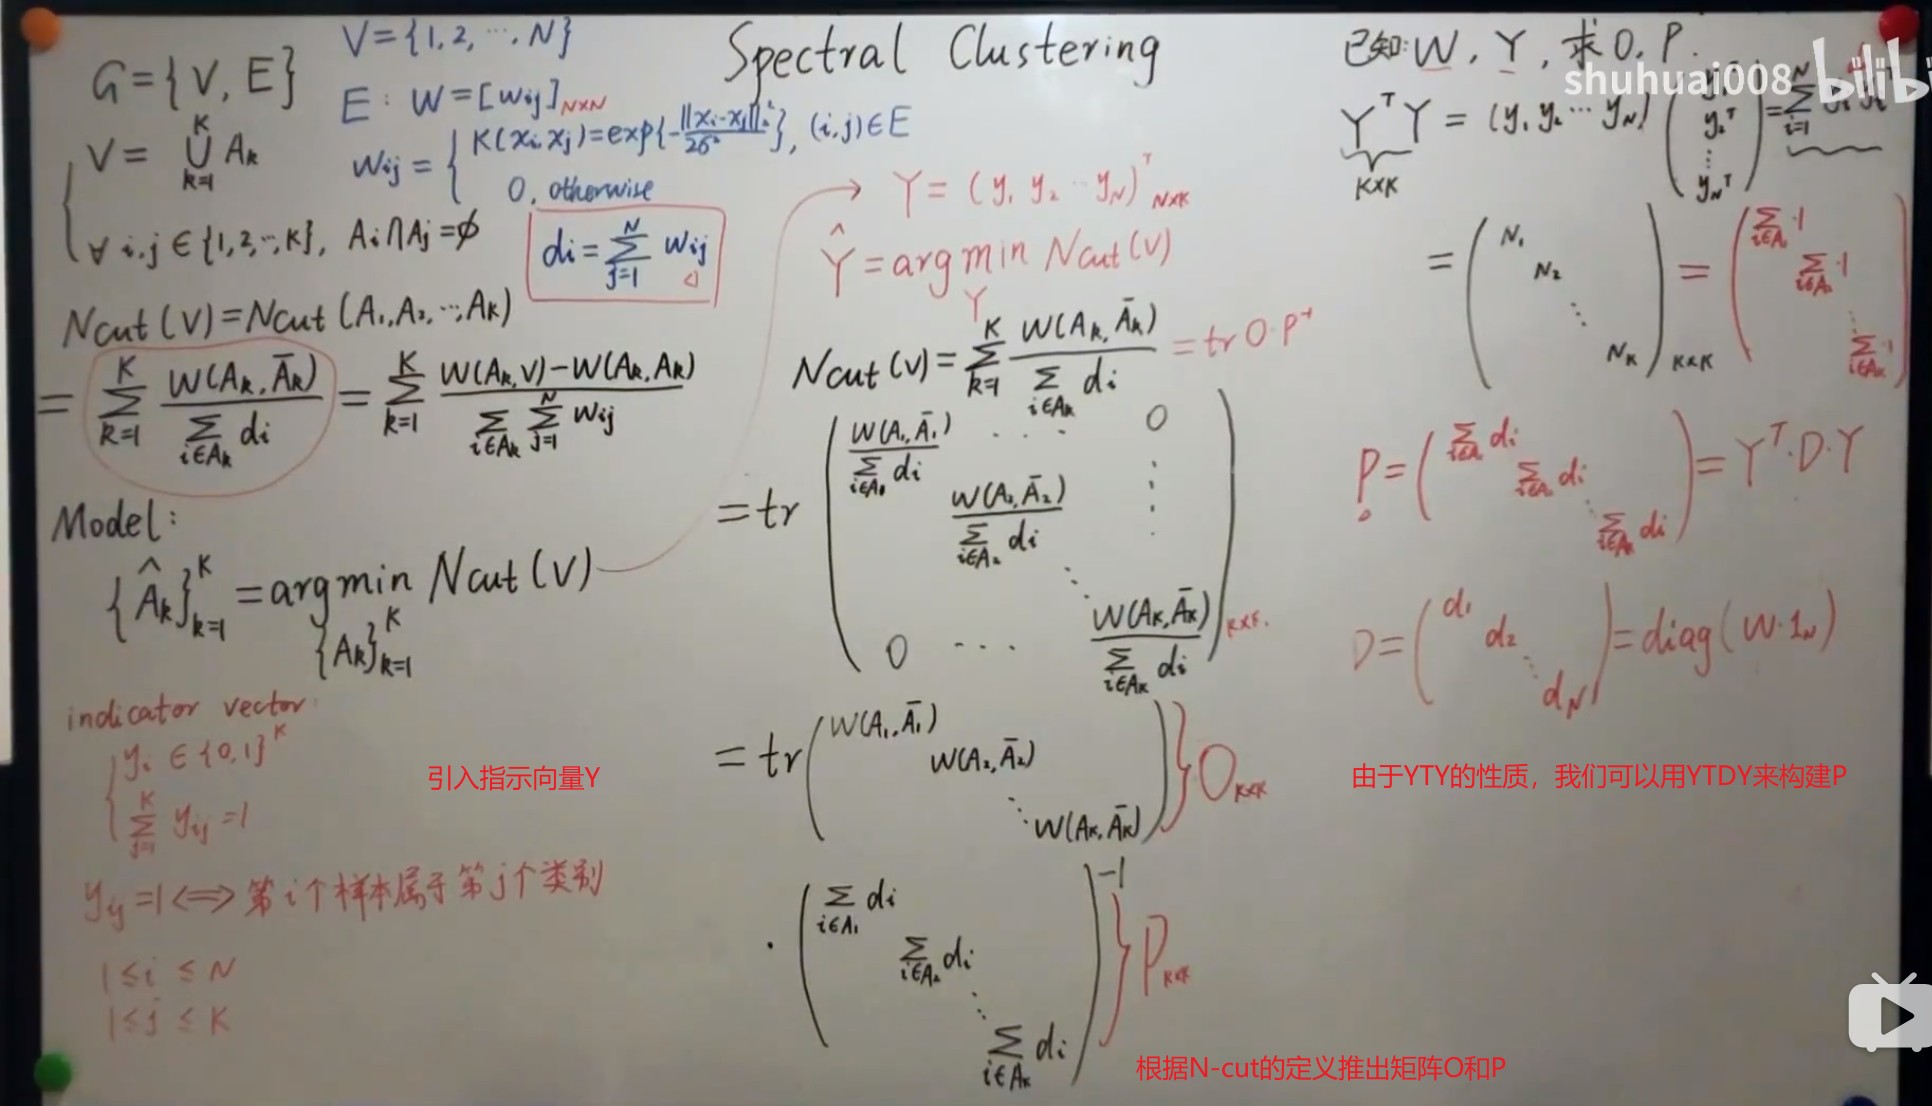 Spectral Clustering
G={V, E}
V={1,2,…,N}
E: W=[wij]N×N
V= ∪ k=1 K Ak
∀ i,j∈{1,2,…,K}, Ai∩Aj=∅
wij = { K(xi,xj)=exp{-||xi-xj||²/2σ²}, (i,j)∈E
0, otherwise
di=∑ j=1 N wij
Ncut(V)=Ncut(A1,A2,…,AK)
=∑ k=1 K W(Ak,Āk)/∑ i∈Ak di =∑ k=1 K (W(Ak,V)-W(Ak,Ak))/∑ i∈Ak ∑ j=1 N wij
Model:
{Âk} k=1 K =argmin {Ak} k=1 K Ncut(V)
indicator vector:
yi∈{0,1}^K
∑ j=1 K yij=1
yij=1⟺第i个样本属于第j个类别
1≤i≤N
1≤j≤K
引入指示向量Y
Y=(y1 y2 … yN)^T N×K
Ŷ=argmin Y Ncut(V)
Ncut(V)=∑ k=1 K W(Ak,Āk)/∑ i∈Ak di =tr O·P^-1
=tr( W(A1,Ā1)/∑ i∈A1 di … 0
W(A2,Ā2)/∑ i∈A2 di ⋮
⋱
0 … W(AK,ĀK)/∑ i∈AK di ) K×K
=tr( W(A1,Ā1)
W(A2,Ā2)
⋱
W(AK,ĀK) ) } O K×K
·( ∑ i∈A1 di
∑ i∈A2 di
⋱
∑ i∈AK di )^-1 } P K×K
根据N-cut的定义推出矩阵O和P
已知: W, Y, 求O, P.
shuhuai008
Y^T Y = (y1 y2 … yN) ( y2^T ⋮ yN^T ) =∑ i=1 N
K×K
=( N1 N2 ⋱ NK ) K×K =( ∑ i∈A1 1 ∑ i∈A2 1 ⋱ ∑ i∈AK 1 )
P=( ∑ i∈A1 di ∑ i∈A2 di ⋱ ∑ i∈AK di )=Y^T·D·Y
D=( d1 d2 ⋱ dN )=diag(W·1N)
由于YTY的性质，我们可以用YTDY来构建P